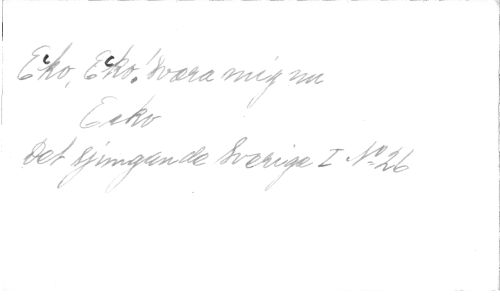 Ecko, Ecko! Svara mig nu
Ecko
Det sjungande Sverige I No 26